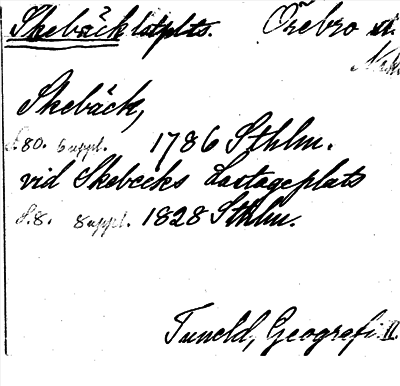 Skebäck lastplats. Örebro st.
Skebäck,
S. 80. Suppl. 1786 Sthlm.
vid Skebecks Lastageplats
S. 8. Suppl. 1828 Sthlm.
Tuneld, Geografi. II.